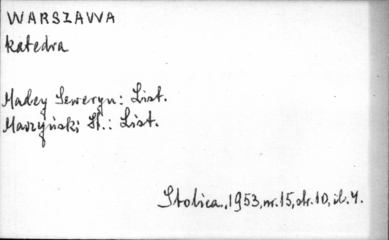 WARSZAWA
katedra
Madey Seweryn: List.
Marzyński St.: List.
Stolica, 1953, nr. 15, str. 10, il. 4.